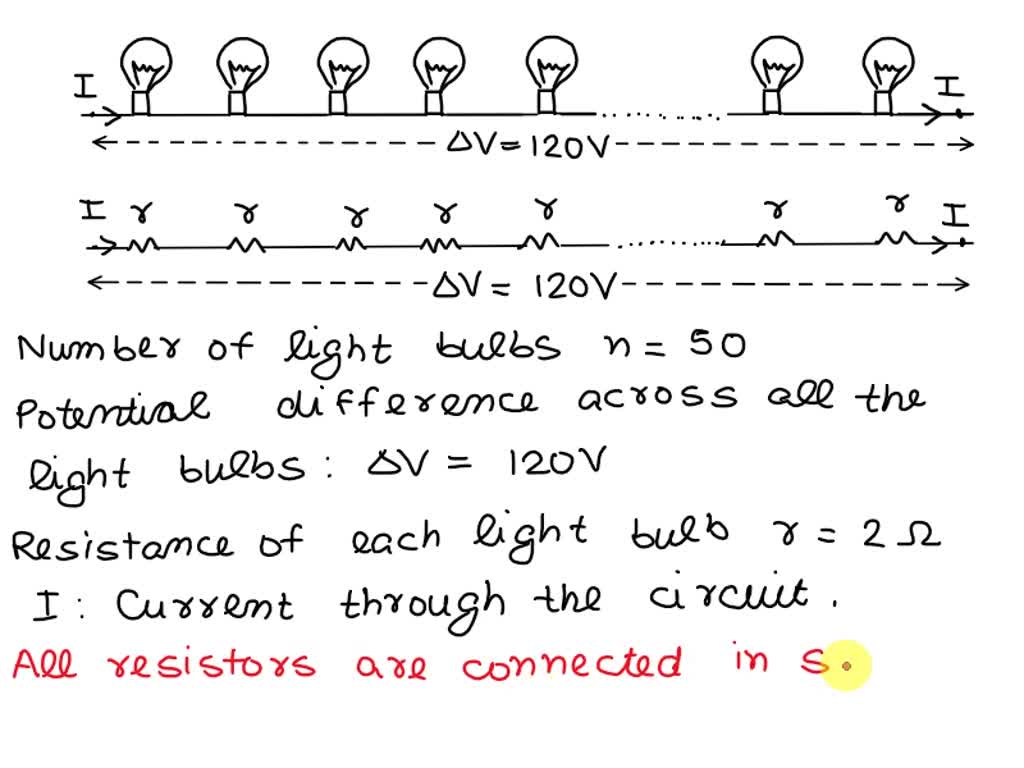 I I
ΔV = 120V
I r r r r r r r I
ΔV = 120V
Number of light bulbs n = 50
Potential difference across all the
light bulbs : ΔV = 120V
Resistance of each light bulb r = 2 Ω
I : Current through the circuit .
All resistors are connected in s